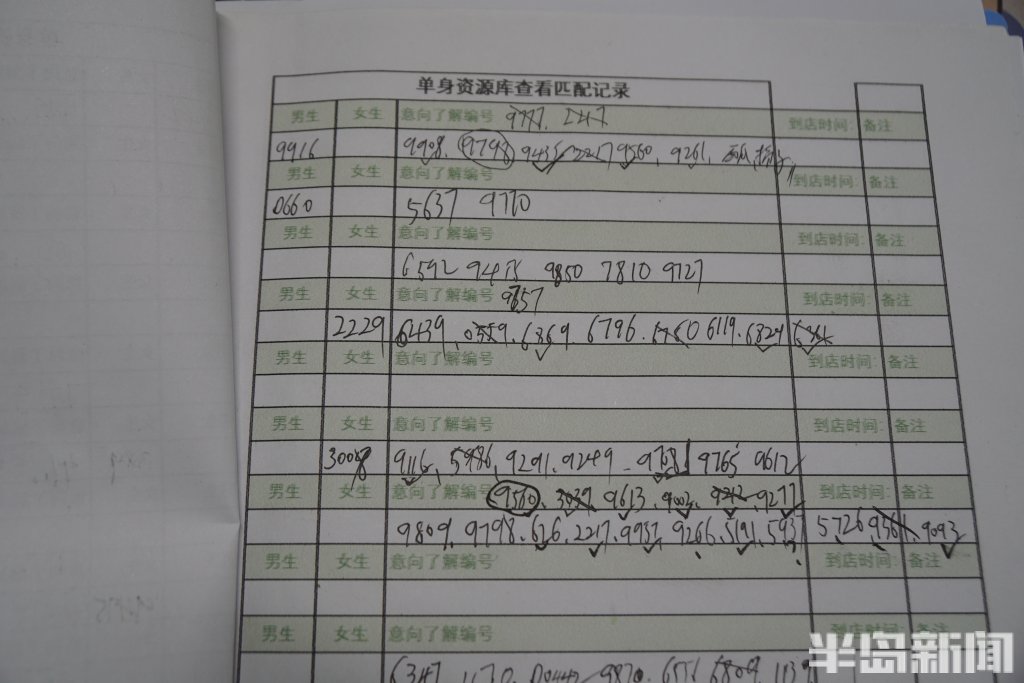 单身资源库查看匹配记录
男生 女生 意向了解编号 9777. 2217 到店时间: 备注
9916 9908. 9798 9435 2217 9560. 9261.
男生 女生 意向了解编号 到店时间: 备注
0660 5637 9770
男生 女生 意向了解编号 到店时间: 备注
6592 9475 9850 7810 9727
男生 女生 意向了解编号 9657 到店时间: 备注
2229 6439. 0559. 6369. 6796. 6760 6119. 6324
男生 女生 意向了解编号 到店时间: 备注
男生 女生 意向了解编号 到店时间: 备注
3008 9116, 5986, 9291. 9249 9768 9765 9612
男生 女生 意向了解编号 9560. 3039 9613. 9002. 9212. 9277 到店时间: 备注
9809. 9798. 626. 2217. 9937. 9266. 5191. 5937 5726 9361. 9093
男生 女生 意向了解编号 到店时间: 备注
男生 女生 意向了解编号 到店时间: 备注
6347 9870. 6809.
半岛新闻